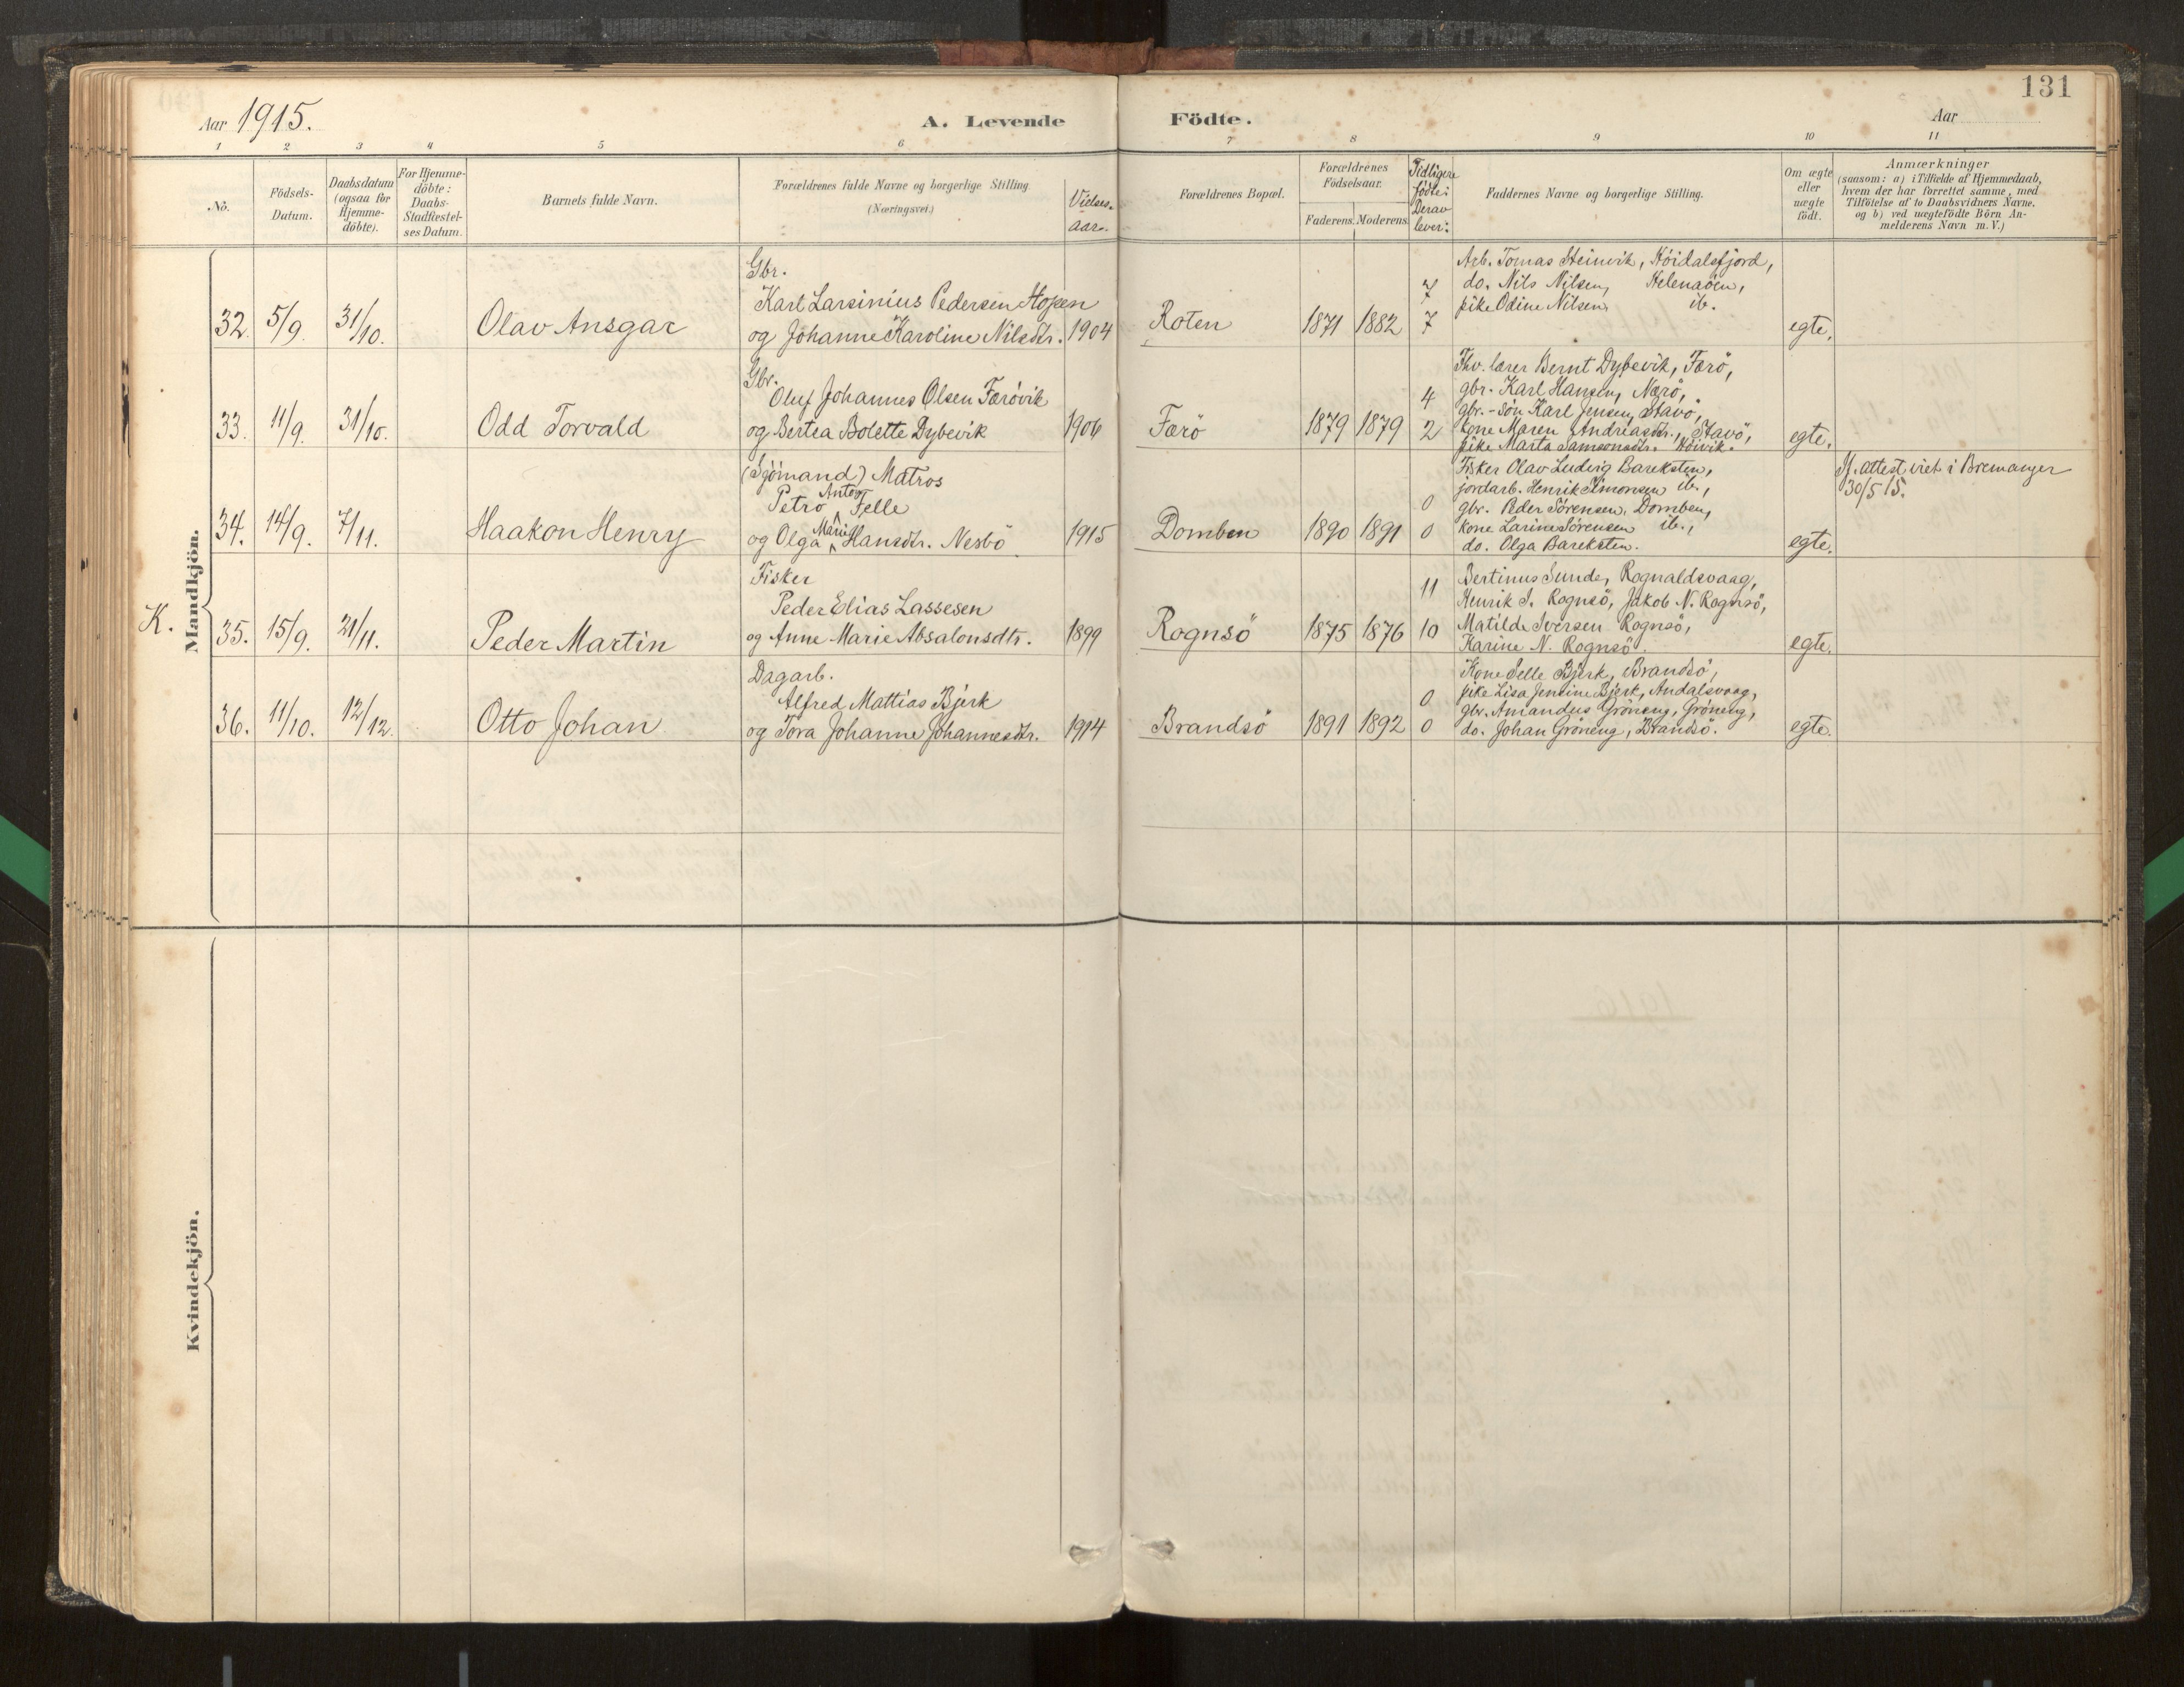 131
Aar 1915.
A. Levende Födte.
Aar
1 2 3 4 5 6 7 8 9 10 11
No.
Födsels-
Datum.
Daabsdatum
(ogsaa for
Hjemme-
döbte).
For Hjemme-
döbte:
Daabs-
Stadfæstel-
ses Datum.
Barnets fulde Navn.
Forældrenes fulde Navne og borgerlige Stilling
(Næringsvei.)
Vielses-
aar.
Forældrenes Bopæl.
Forældrenes
Födselsaar.
Faderens. Moderens.
Tidligere
födte:
Derav
lever:
Faddernes Navne og borgerlige Stilling.
Om ægte
eller
uægte
födt.
Anmærkninger
(saasom: a) i Tilfælde af Hjemmedaab,
hvem der har forrettet samme, med
Tilföielse af to Daabsvidners Navne,
og b) ved uægtefödte Börn An-
melderens Navn m. V.)
Mandkjön.
32. 5/9. 31/10. Olav Ansgar
Gbr.
Karl Larsinius Pedersen Hopen
og Johanne Karoline Nilsdtr. 1904
Roten 1871 1882
7
7
Arb. Tomas Steinvik, Höidalsfjord,
do. Nils Nilsen, Helenaöen,
pike Odine Nilsen ib.
egte.
33. 11/9. 31/10. Odd Torvald
Gbr.
Oluf Johannes Olsen Færövik
og Bertea Bolette Dybevik 1906
Færö 1879 1879
4
2
Fhv. lærer Bernt Dybevik, Færö,
gbr. Karl Hansen, Nærö,
gbr.-sön Karl Jensen, Stavö,
kone Maren Andreasdtr., Stavö,
pike Marta Samsonsdtr. Höivik.
egte.
34. 14/9. 7/11. Haakon Henry
(Sjömand) Matros
Petro Anton Felle
og Olga Marie Hansdtr. Nesbö 1915
Domben 1890 1891
0
0
Fisker Olav Ludvig Bareksten,
jordarb. Henrik Simonsen ib.,
gbr. Peder Sörensen, Domben,
kone Larine Sörensen ib.,
do. Olga Bareksten.
egte.
attest viet i Bremanger
30/5 15.
K.
35. 15/9. 21/11. Peder Martin
Fisker
Peder Elias Lassesen
og Anne Marie Absalonsdtr. 1899
Rognsö 1875 1876
11
10
Bertinus Sunde, Rognaldsvaag,
Henrik I. Rognsö, Jakob N. Rognsö,
Matilde Iversen Rognsö,
Karine N. Rognsö.
egte.
36. 11/10. 12/12. Otto Johan
Dagarb.
Alfred Mattias Bjerk
og Tora Johanne Johannesdtr. 1914
Brandsö 1891 1892
0
0
Kone Pelle Bjerk, Brandsö,
pike Lisa Jensine Bjerk, Andalsvaag,
gbr. Amandus Gröneng, Gröneng,
do. Johan Gröneng, Brandsö.
egte.
Kvindekjön.